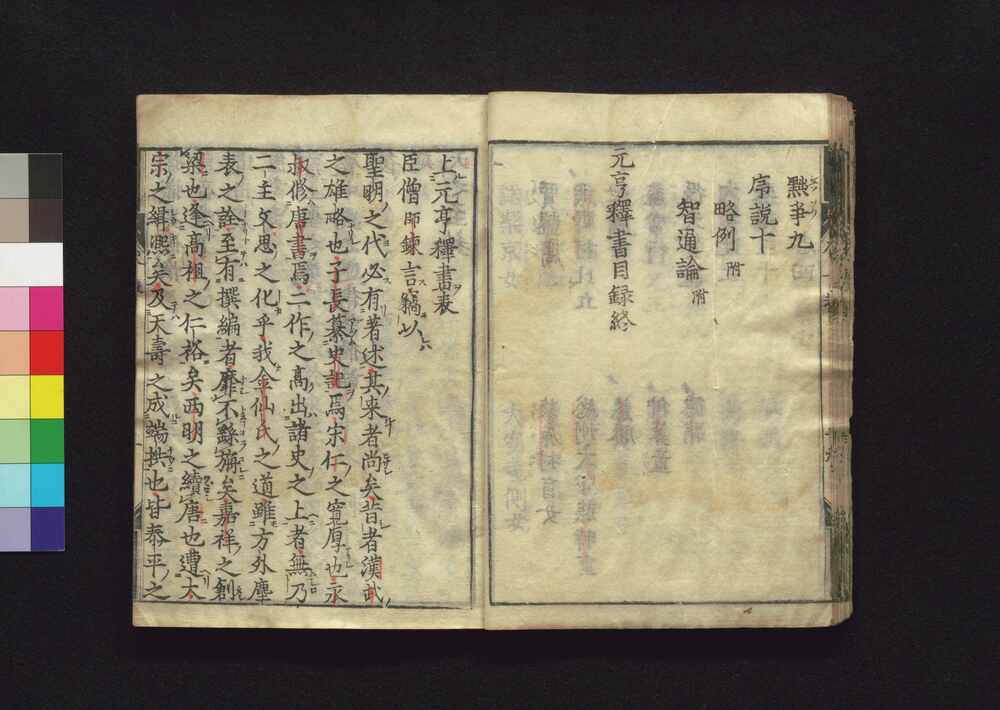 黜爭九
序說十
略例附
智通論附
元亨釋書目録終
上元亨釋書表
臣僧師錬言竊以
聖明之代必有著述其来者尚矣昔者漢武
之雄略也子長纂史記焉宋仁之寛厚也永
叔修唐書焉二作之高出諸史之上者無乃
二主文思之化乎我金仙氏之道雖方外塵
表之詮至有撰編者靡不繇旃矣嘉祥之創
梁也逢高祖之仁裕矣西明之續唐也遭太
宗之緝熙矣及天壽之成端拱也皆泰平之